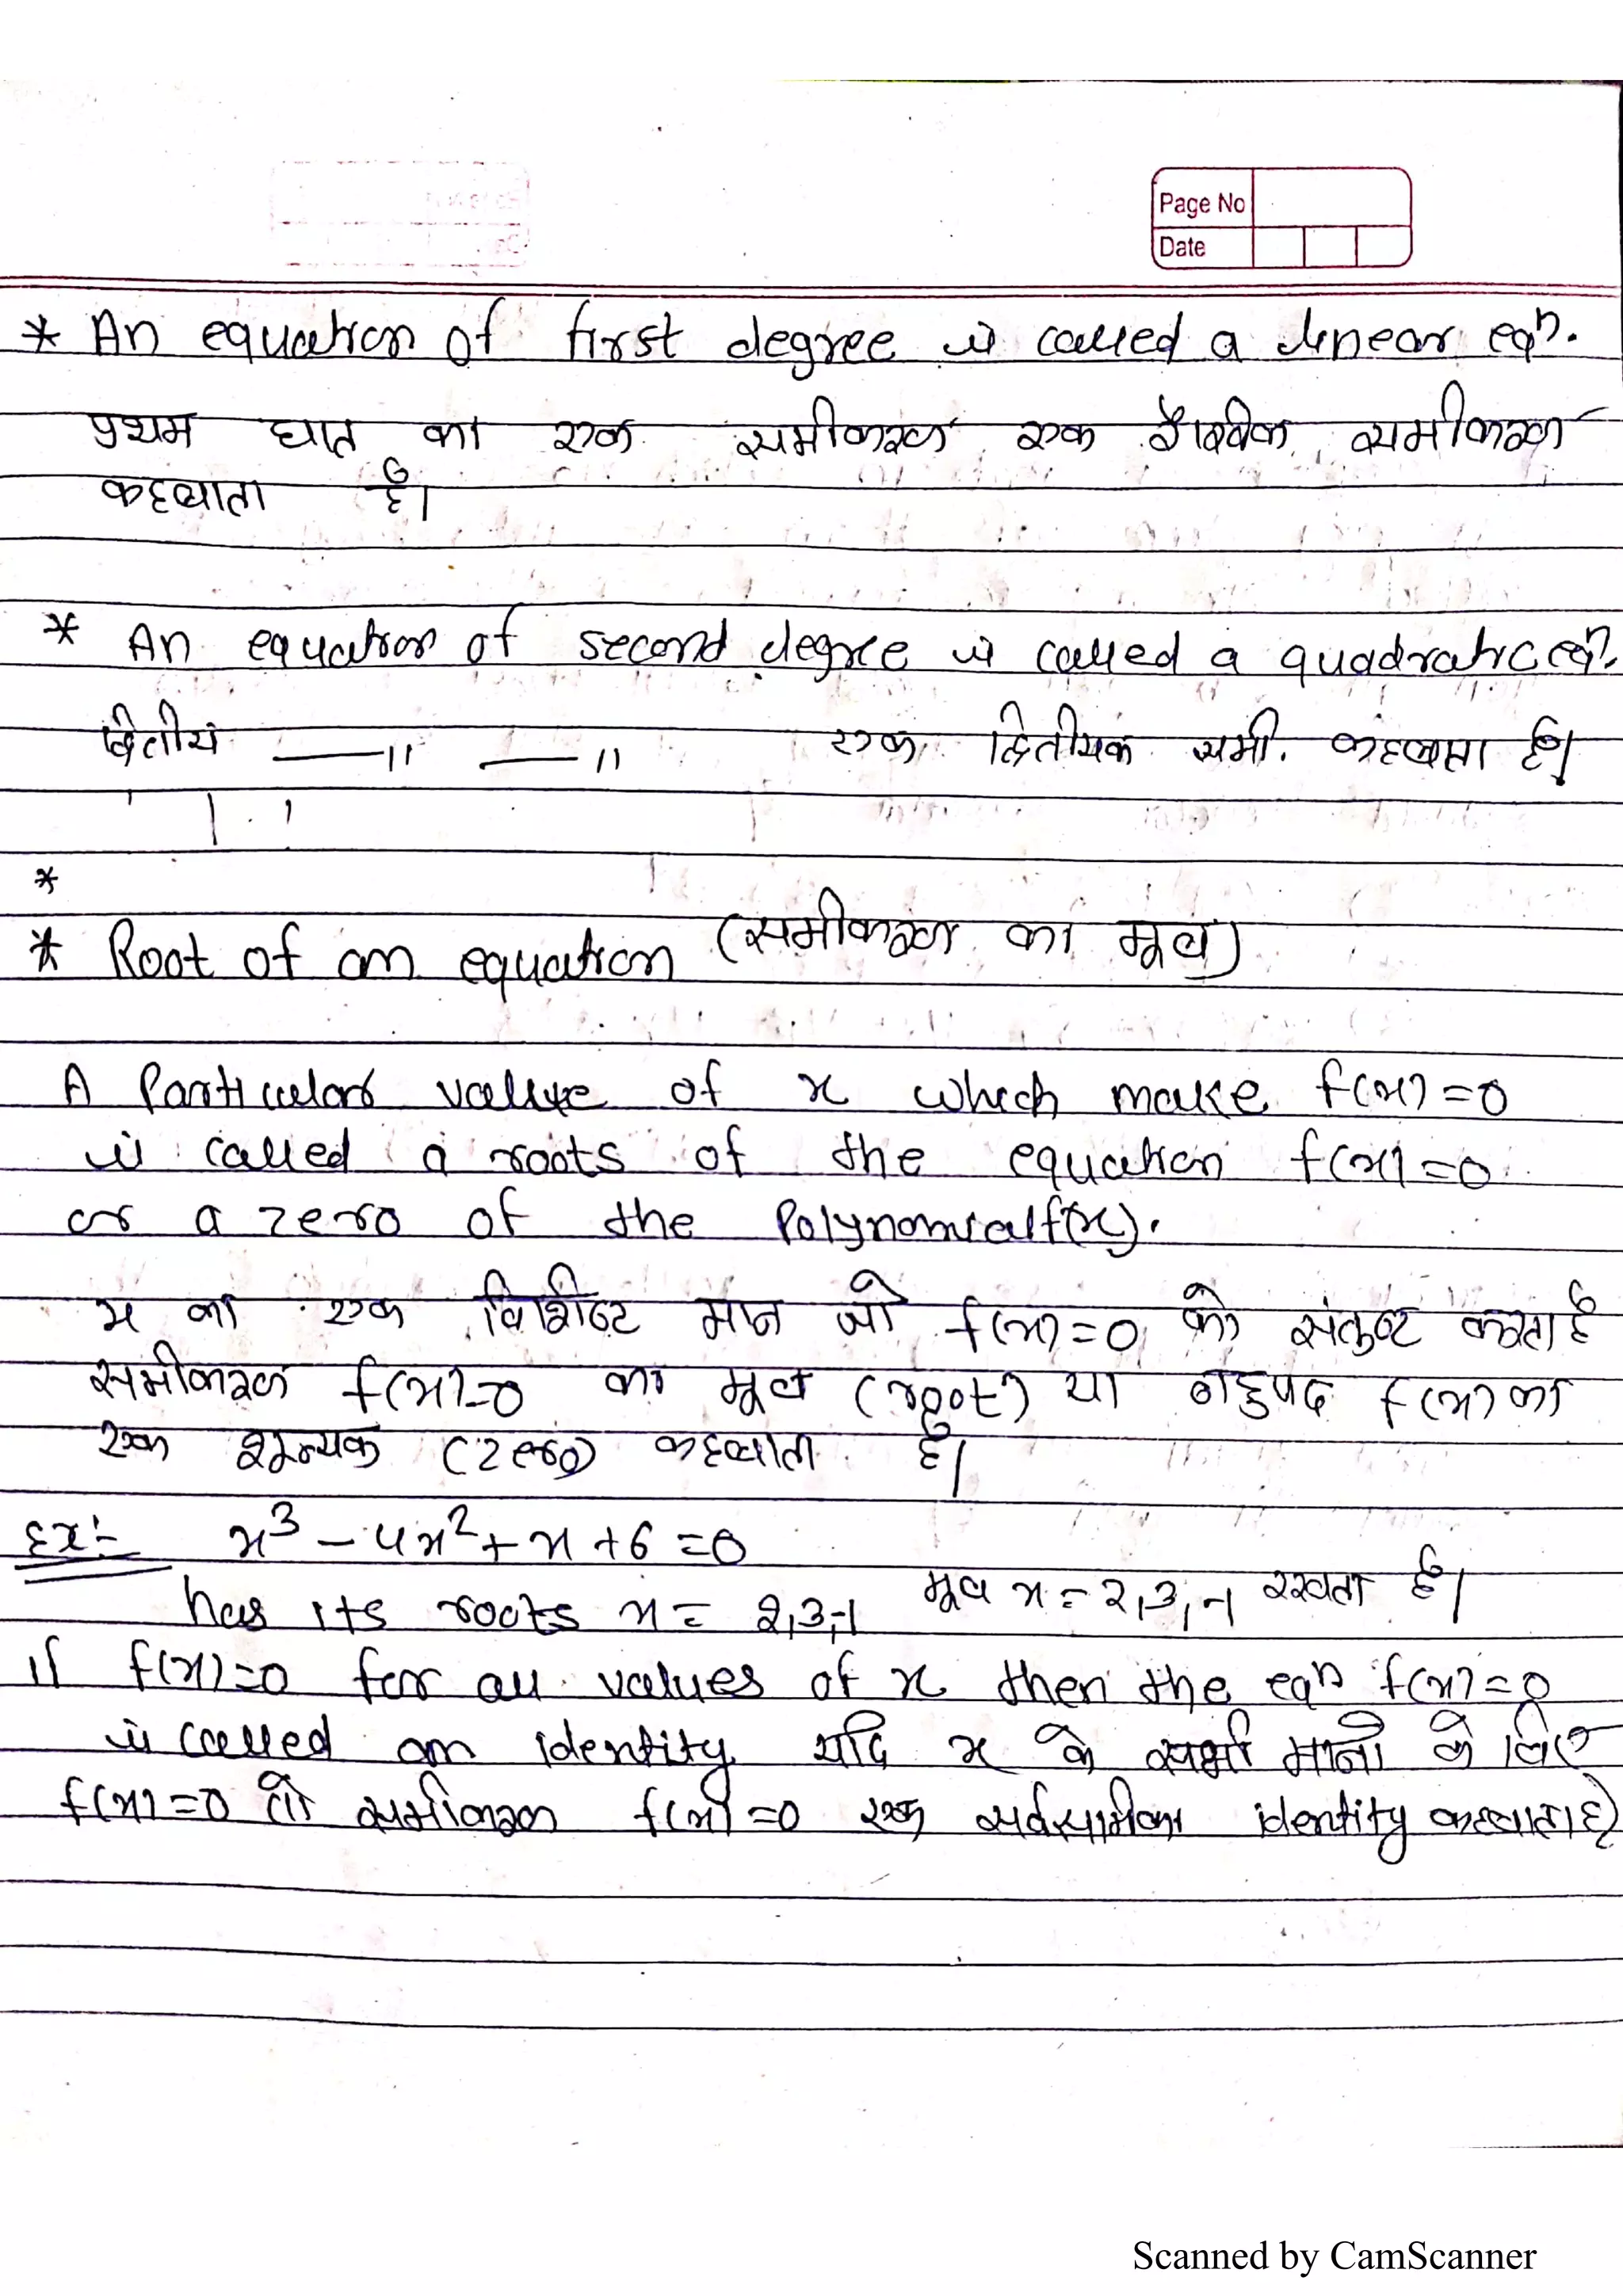 Page No
Date
* An equation of first degree is called a linear eqn.
प्रथम घात का एक समीकरण एक रैखिक समीकरण
कहलाता है।
* An equation of second degree is called a quadratic eqn.
द्वितीय —— " —— " एक द्वितीयक समी. कहलाता है।
*
* Root of an equation (समीकरण का मूल)
A Particular value of x which make f(x)=0
is called a roots of the equation f(x)=0
or a zero of the Polynomial f(x).
x का एक विशिष्ट मान जो f(x)=0 को संतुष्ट करता है
समीकरण f(x)=0 का मूल (root) या बहुपद f(x) का
एक शून्यक (zero) कहलाता है।
Ex:- x³ – 4x² + x + 6 = 0
has its roots x = 2,3,-1 मूल x = 2,3,-1 रखता है।
if f(x)=0 for all values of x then the eqn f(x)=0
is called an identity यदि x के सभी मानो के लिए
f(x)=0 तो समीकरण f(x)=0 एक सर्वसामिका identity कहलाता है)
Scanned by CamScanner